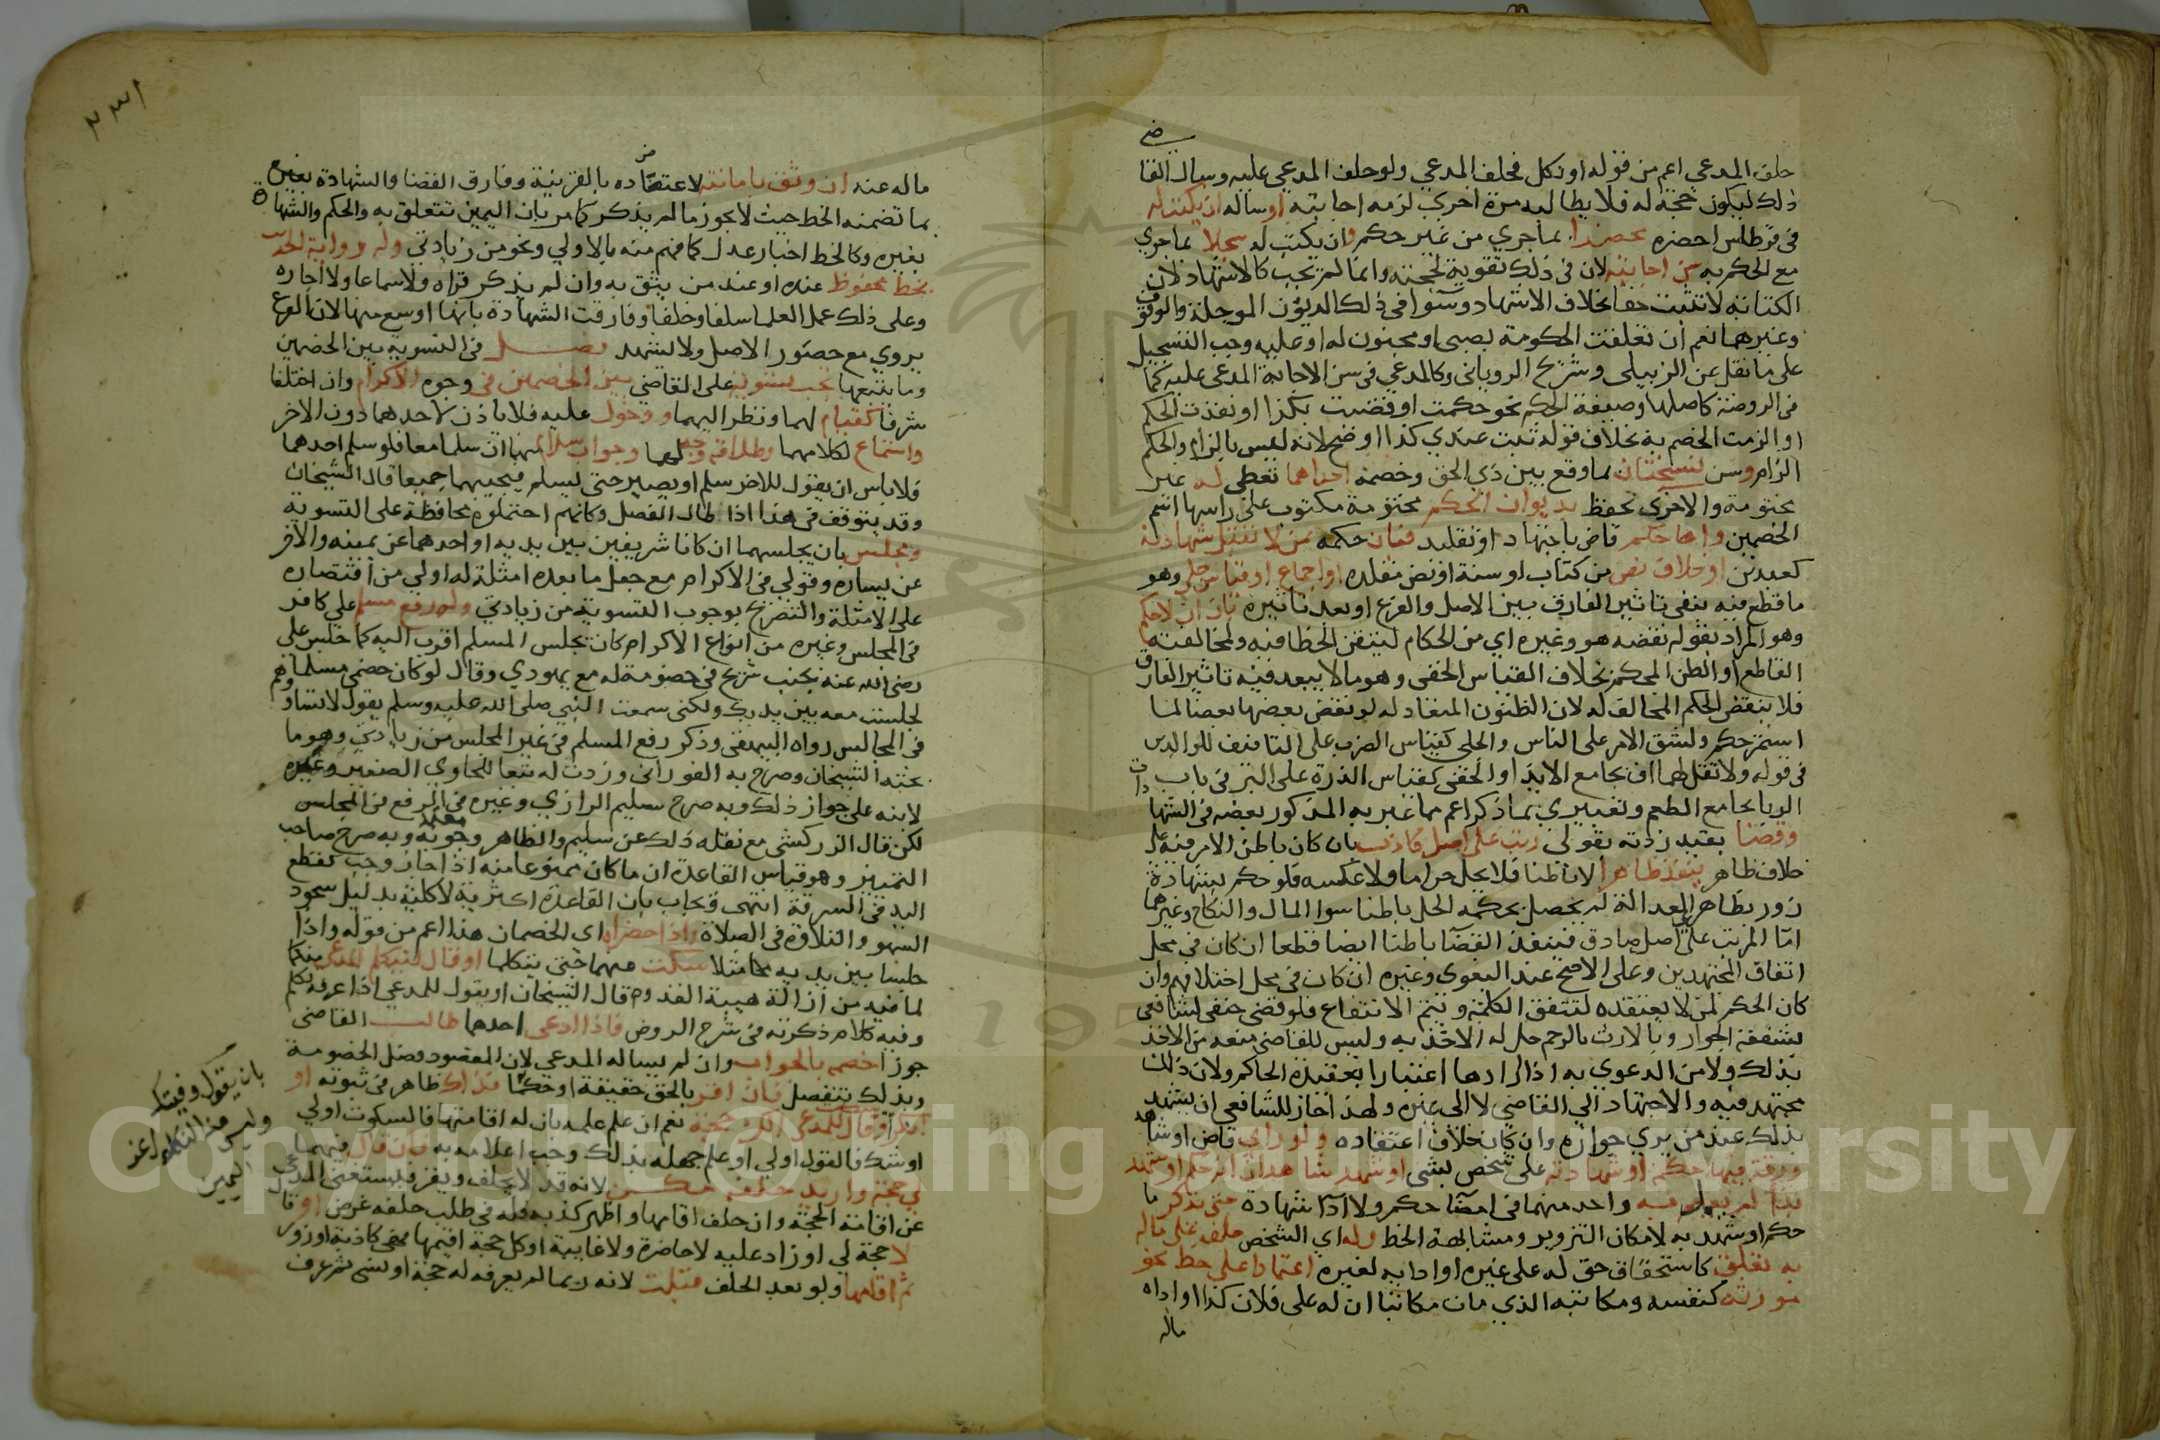 حلف المدعي اعم من قوله او نكل فحلف المدعي ولو حلف المدعي عليه وسال القا
ضي
ذلك ليكون حجة له فلا يطالبه مرة اخري لزمه اجابته او ساله ان يكتب له
في قرطاس احضره محضرا بما جري من غير حكم وان يكتب له سجلا بما جري
مع الحكم به سن اجابته لان في ذلك تقوية لحجته وانما لم تجب كالاشهاد لان
الكتابة لا تثبت حقا بخلاف الاشهاد وسوا في ذلك الديون الموجلة والوقوف
وغيرهما نعم ان تعلقت الحكومة بصبي او مجنون له او عليه وجب التسجيل
علي ما نقل عن الزبيلي وشريح الروياني وكالمدعي في سن الاجابة المدعي عليه كما
في الروضة كاصلها وصيغة الحكم نحو حكمت او قضيت بكذا او نفذت الحكم
او الزمت الخصم به بخلاف قوله ثبت عندي كذا او صح لانه ليس بالزام والحكم
الزام وسن نسختان بما وقع بين ذي الحق وخصمه احداهما تعطي له غير
مختومة والاخري تحفظ بديوان الحكم مختومة مكتوب علي راسها اسم
الخصمين واذا حكم قاض باجتهاد او تقليد فبان حكمه بمن لا تقبل شهادته
كعبدين او خلاف نص من كتاب او سنة او نص مقلده او اجماع او قياس جلي وهو
ما قطع فيه بنفي تاثير الفارق بين الاصل والفرع او بعد تاثيره بان ان لا حكم
وهو المراد بقوله نقضه هو وغيره اي من الحكام لتيقن الخطا فيه ولمخالفته
القاطع او الظن المحكم بخلاف القياس الخفي وهو ما لا يبعد فيه تاثير الفارق
فلا ينقض الحكم المخالف له لان الظنون المتعادلة لو نقض بعضها بعضا لما
استمر حكم ولشق الامر علي الناس والجلي كقياس الضرب علي التافيف للوالدين
في قوله ولا تقل لهما اف بجامع الايذا والخفي كقياس الذرة علي البر في باب
الربا بجامع الطعم وتعبيري بما ذكر اعم مما عبر به المذكور بعضه في الشهادات
وقضا بقيد زدته بقولي رتب علي اصل كاذب بان كان باطن الامر فيه علي
خلاف ظاهر ينفذ ظاهرا لا باطنا فلا يحل حراما ولا عكسه فلو حكم بشهادة
زور بظاهر العدالة لم يحصل بحكمه الحل باطنا سوا المال والنكاح وغيرهما
اما المرتب علي اصل صادق فينفذ القضا باطنا ايضا قطعا ان كان في محل
اتفاق المجتهدين وعلي الاصح عند البغوي وغيره ان كان في محل اختلافهم وان
كان الحكم لمن لا يعتقده لتتفق الكلمة ويتم الانتفاع فلو قضي حنفي لشافعي
بشفعة الجوار وبالارث بالرحم حل له الاخذ به وليس للقاضي منعه من الاخذ
بذلك ولا من الدعوي به اذا ارادها اعتبارا بعقيدة الحاكم ولان ذلك
مجتهد فيه والاجتهاد الي القاضي لا الي غيره ولهذا جاز للشافعي ان يشهد
بذلك عند من يري جوازه وان كان خلاف اعتقاده ولو راي قاض او شاهد
ورقة فيها حكمه او شهادته علي شخص بشي او شهد شاهدان انه حكم او شهد
بذا لم يعمل به واحد منهما في امضا حكم ولا اداء شهادة حتي يتذكر ما
حكم او شهد به لامكان التزوير ومشابهة الخط وله اي الشخص حلف علي ماله
به تعلق كاستحقاق حق له علي غيره او ادايه لغيره اعتمادا علي خط نحو
مورثه كنفسه ومكاتبه الذي مات مكاتبا ان له علي فلان كذا او اداه
ماله
٢٣١
ماله عنه ان وثق بامانته لاعتضاده بالقرينة وفارق القضا والشهادة بغير
بما تضمنه الخط حيث لا يجوز ما لم يذكر كما مر بان اليمين تتعلق به والحكم والشهادة
بغيره وكالخط اخبار عدل كما فهم منه بالاولي ونحو من زيادتي وله رواية الحديث
بخط محفوظ عنده او عند من يثق به وان لم يذكر قراه ولا سماعا ولا اجازه
وعلي ذلك عمل العلما سلفا وخلفا وفارقت الشهادة بانها اوسع منها لان الفرع
يروي مع حضور الاصل ولا يشهد فصل في التسوية بين الخصمين
وما يتبعها تجب تسوية علي القاضي بين الخصمين في وجوه الاكرام وان اختلفا
شرفا كقيام لهما ونظر اليهما ودخول عليه فلا ياذن لاحدهما دون الاخر
واستماع لكلامهما وطلاقة وجه لهما وجواب سلام منهما ان سلما معا فلو سلم احدهما
فلا باس ان يقول للاخر سلم او يصبر حتي يسلم فيجيبهما جميعا قال الشيخان
وقد يتوقف في هذا اذا طال الفصل وكانهم احتملوه محافظة علي التسوية
ومجلس بان يجلسهما ان كانا شريفين بين يديه او احدهما عن يمينه والاخر
عن يساره وقولي في الاكرام مع جعل ما بعده امثلة له اولي من اقتصاره
علي الامثلة والتصريح بوجوب التسوية من زيادتي وله رفع مسلم علي كافر
في المجلس وغيره من انواع الاكرام كان يجلس المسلم اقرب اليه كما جلس علي
رضي الله عنه بجنب شريح في خصومة له مع يهودي وقال لو كان خصمي مسلما
لجلست معه بين يديك ولكني سمعت النبي صلي الله عليه وسلم يقول لا تساووهم
في المجالس رواه البيهقي وذكر رفع المسلم في غير المجلس من زيادتي وهو ما
بحثه الشيخان وصرح به الفوراني وزدت له تبعا للحاوي الصغير وغيره
لانبه علي جواز ذلك وبه صرح سليم الرازي وغيره في الرفع في المجلس
لكن قال الزركشي مع نقله ذلك عن سليم والظاهر وجوبه وبه صرح صاحب
التمييز وهو قياس القاعدة ان ما كان ممنوعا منه اذا جاز وجب كقطع
اليد في السرقة انتهي ويجاب بان القاعدة اكثرية لا كلية بدليل سجود
السهو والتلاوة في الصلاة واذا حضراه اي الخصمان هذا اعم من قوله واذا
جلسا بين يديه مثلا سكت عنهما حتي يتكلما او قال ليتكلم المدعي منكما
لما فيه من ازالة هيبة القدوم قال الشيخان او يقول للمدعي اذا عرفه تكلم
وفيه كلام ذكرته في شرح الروض فاذا ادعي احدهما طالب القاضي
جوازا خصمه بالجواب وان لم يساله المدعي لان المقصود فصل الخصومة
وبذلك ينفصل فان اقر بالحق حقيقة او حكما فذاك ظاهر في ثبوته او
انكر قال للمدعي الك حجة نعم ان علم علمه بان له اقامتها فالسكوت اولي
او شك فالقول اولي او علم جهله بذلك وجب اعلامه به فان قال فيهما
لي حجة واريد حلفه مكن لانه قد لا يحلف ويقر فيستغني المدعي
عن اقامة الحجة وان حلف اقامها واظهر كذبه فله في طلب حلفه غرض او قال
لا حجة لي او زاد عليه لا حاضرة ولا غايبة او كل حجة اقيمها فهي كاذبة او زور
ثم اقامها ولو بعد الحلف قبلت لانه ربما لم يعرف له حجة او نسي ثم عرف
بان يقول وفيتك
وليس هذا
اليمين
Copyright © King Saud University
1957